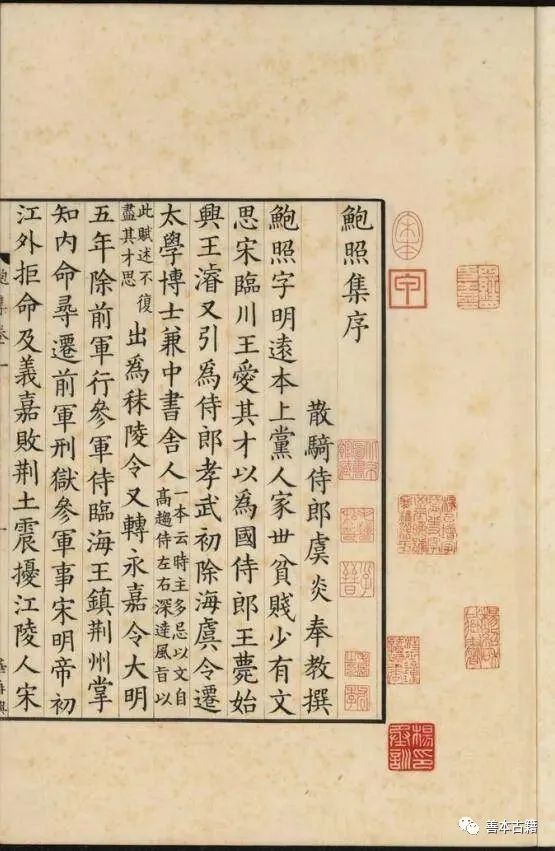 鮑照集序
散騎侍郎虞炎奉教撰
鮑照字明遠本上黨人家世貧賤少有文
思宋臨川王愛其才以為國侍郎王薨始
興王濬又引為侍郎孝武初除海虞令遷
太學博士兼中書舍人
一本云時主多忌以文自
高趨侍左右深達風旨以
此賦述不復
盡其才思
出為秣陵令又轉永嘉令大明
五年除前軍行參軍侍臨海王鎮荆州掌
知内命尋遷前軍刑獄參軍事宋明帝初
江外拒命及義嘉敗荆土震擾江陵人宋
善本古籍